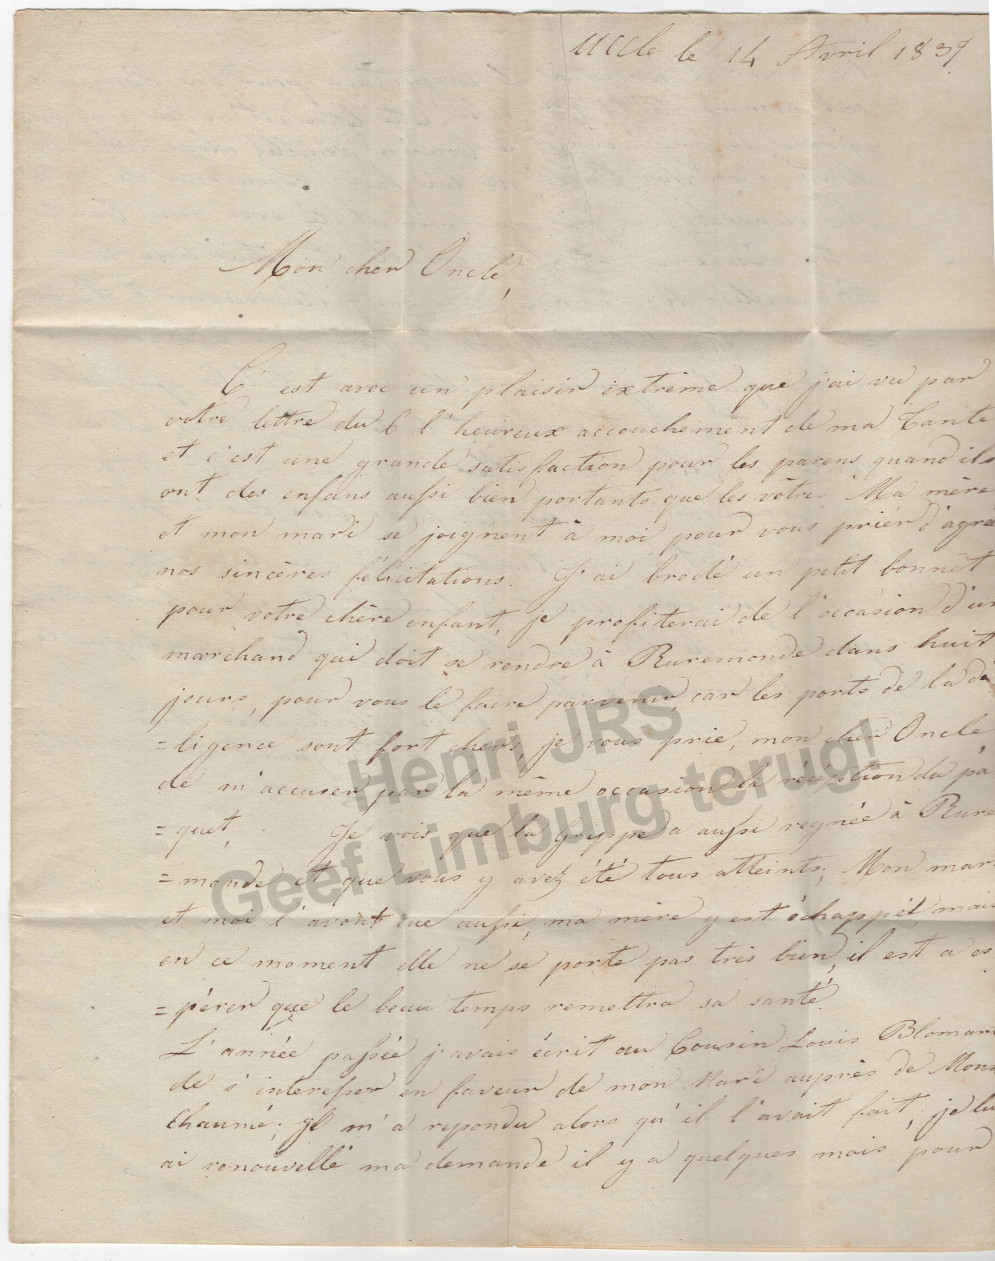 Uccle le 14 Avril 1837
Mon cher Oncle,
C'est avec un plaisir extrême que j'ai vu par
votre lettre du 6 l'heureux accouchement de ma Tante
et c'est une grande satisfaction pour les parens quand ils
ont des enfans aussi bien portants que les vôtres. Ma mère
et mon mari se joignent à moi pour vous priér d'agré
nos sincères félicitations. J'ai brodé un petit bonnèt
pour votre chère enfant, je profiterai de l'occasion d'un
marchand qui doit se rendre à Ruremonde dans huit
jours, pour vous le faire parvenir, car les ports de la di
=ligence sont fort chers, je vous prie, mon cher Oncle
de m'accuser par la même occasion la réception du pa
=quet, Je vois que la Grippe a aussi regnée à Rure
=monde et que vous y avez été tous atteints, Mon mari
et moi l'avont eue aussi, ma mère y est échappée, mais
en ce moment elle ne se porte pas très bien, il est a es
=pérer que le beau temps remettra sa santé.
L'année passée j'avais écrit au Cousin Louis Blomar
de s'interesser en faveur de mon Mari auprès de Mons
Chaumé; Il m'a repondu alors qu'il l'avait fait, je lu
ai renouvellé ma demande il y a quelques mois pour
Henri JRS
Geef Limburg terug!